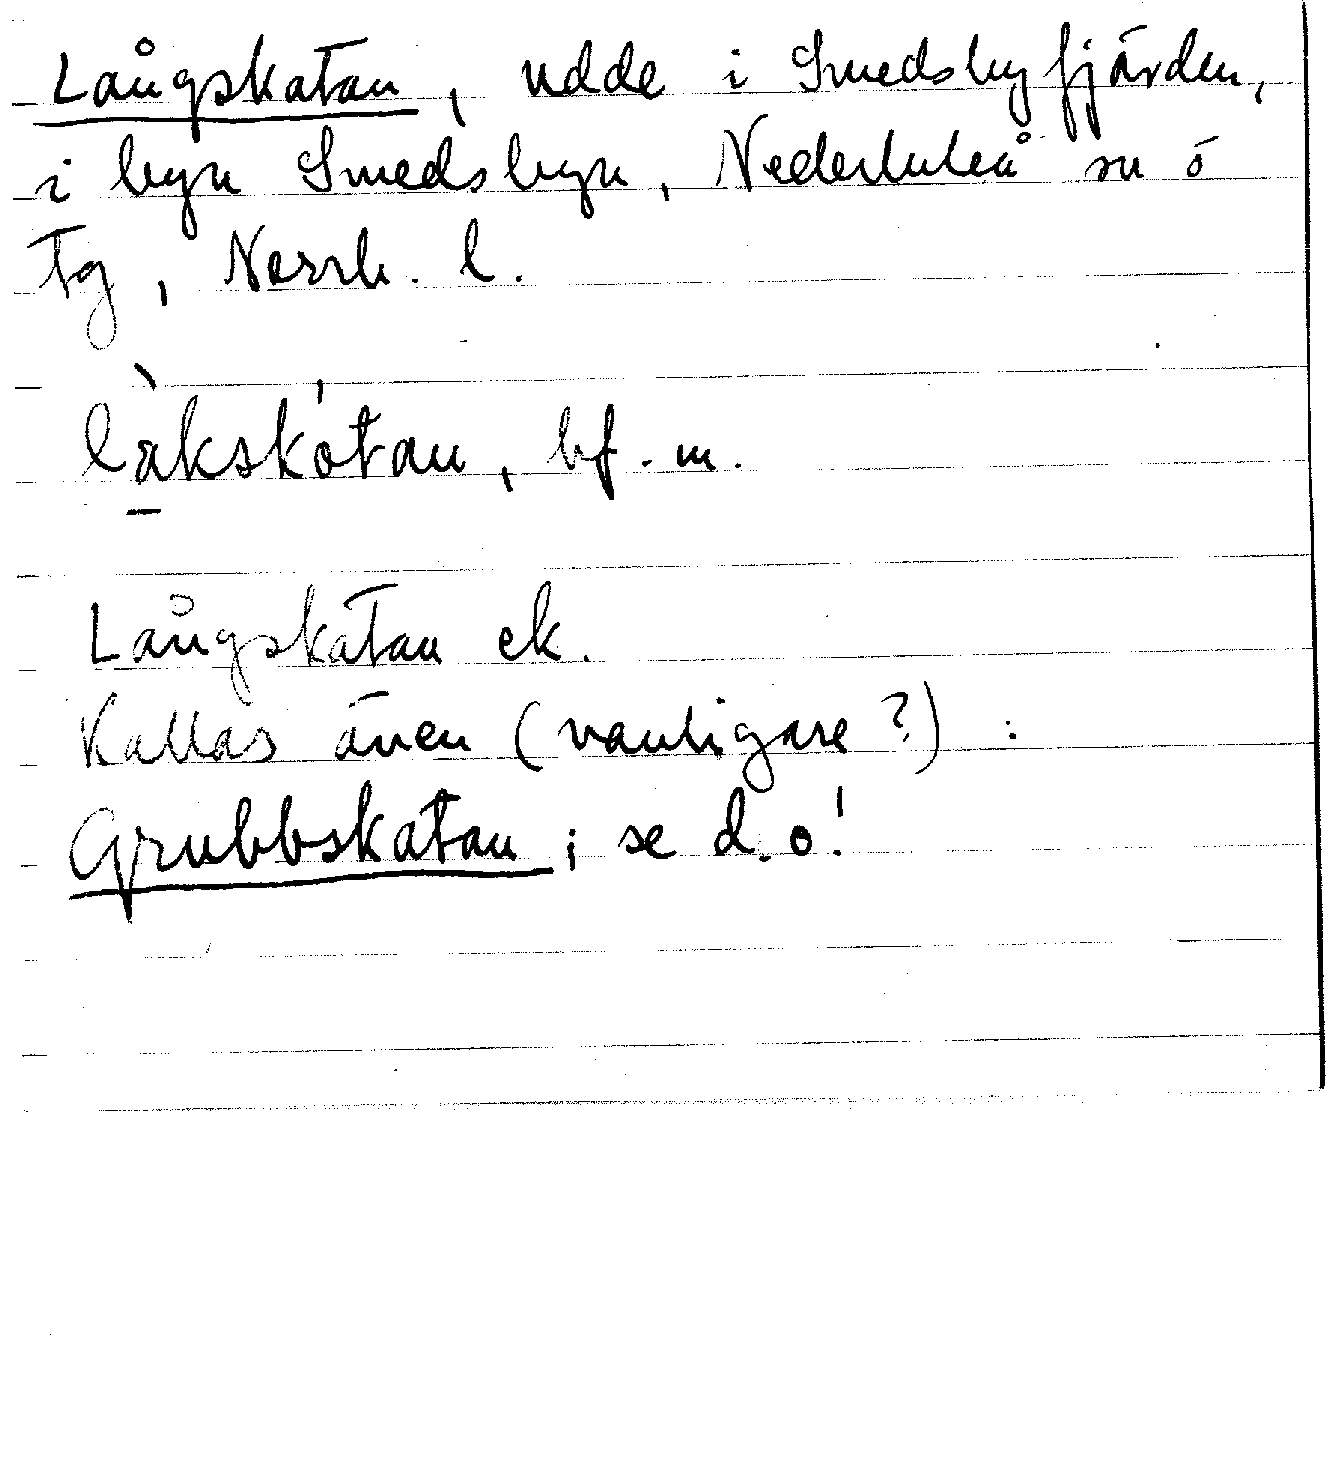 Långskatan, udde i Smedsbyfjärden,
i byn Smedsbyn, Nederluleå sn ó
Tg, Norrb. l.
là̱kskátan, bf. m.
Långskatan ek.
Kallas även (vanligare?):
Grubbskatan; se d.o!